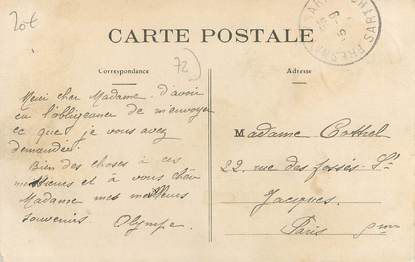 20€
CARTE POSTALE
Correspondance
72
Adresse
Merci cher Madame d'avoir
eu l'obligeance de m'envoyer
ce que je vous avez
demander.
Bien des choses à ces
messieurs et à vous chère
Madame mes meilleurs
souvenirs Olympe.
Madame Cottrel
22, rue des fossés St
Jacques.
Paris